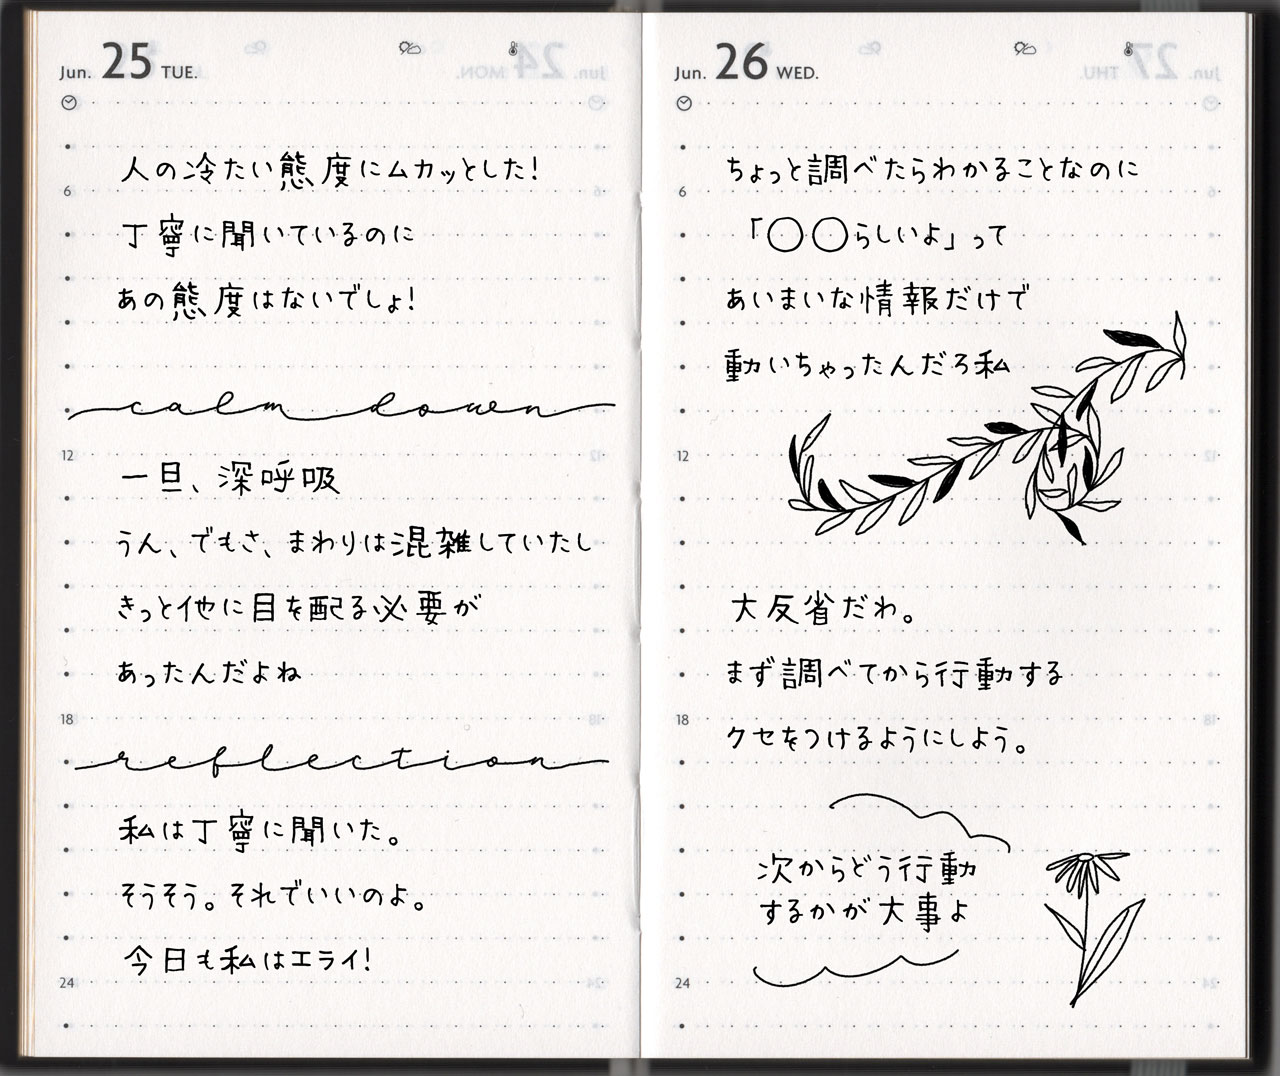 Jun. 25 TUE.
人の冷たい態度にムカッとした!
6
丁寧に聞いているのに
あの態度はないでしょ!
calm down
12
一旦、深呼吸
うん、でもさ、まわりは混雑していたし
きっと他に目を配る必要が
あったんだよね
18
reflection
私は丁寧に聞いた。
そうそう。それでいいのよ。
今日も私はエライ!
24
Jun. 26 WED.
ちょっと調べたらわかることなのに
6
「◯◯らしいよ」って
あいまいな情報だけで
動いちゃったんだろ私
12
大反省だわ。
まず調べてから行動する
18
クセをつけるようにしよう。
次からどう行動
するかが大事よ
24